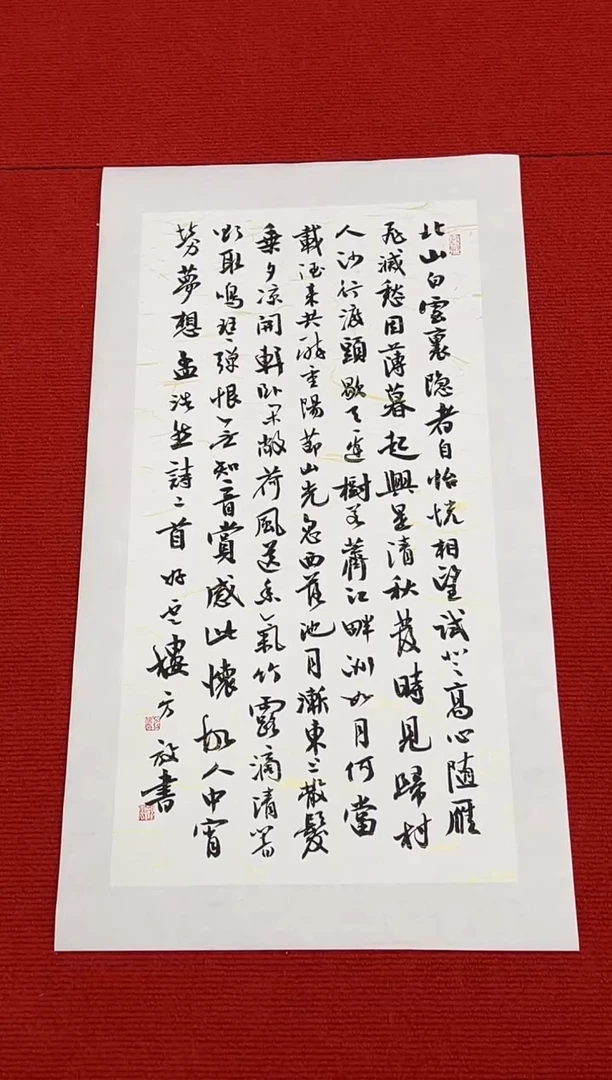 北山白雲裏隐者自怡悦相望試登高心随雁
飛滅愁因薄暮起興是清秋發時見歸村
人沙行渡頭歇天邊樹若薺江畔洲如月何當
載酒来共醉重陽節山光忽西落池月漸東上散髮
乘夕凉開軒卧闲敞荷風送香氣竹露滴清響
欲取鳴琴彈恨無知音賞感此懷故人中宵
勞夢想孟浩然詩二首好雲樓方放書